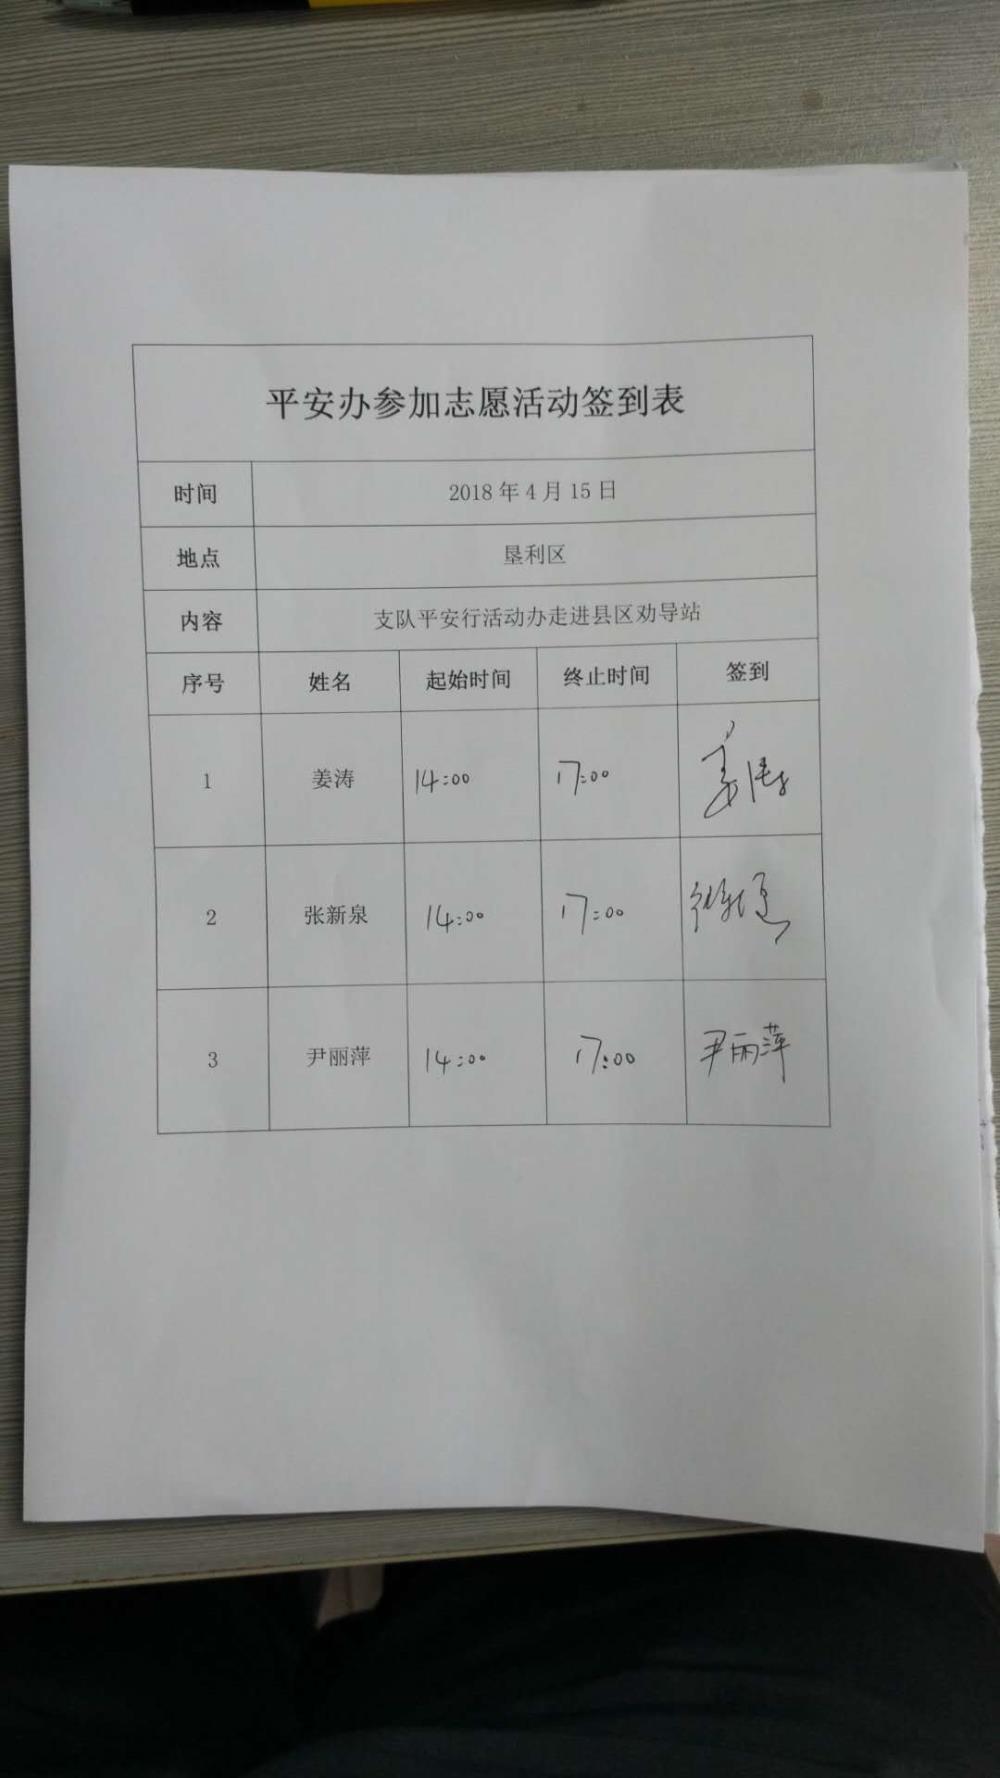 平安办参加志愿活动签到表
时间 2018年4月15日
地点 垦利区
内容 支队平安行活动办走进县区劝导站
序号 姓名 起始时间 终止时间 签到
1 姜涛 14:00 17:00 姜涛
2 张新泉 14:00 17:00
3 尹丽萍 14:00 17:00 尹丽萍